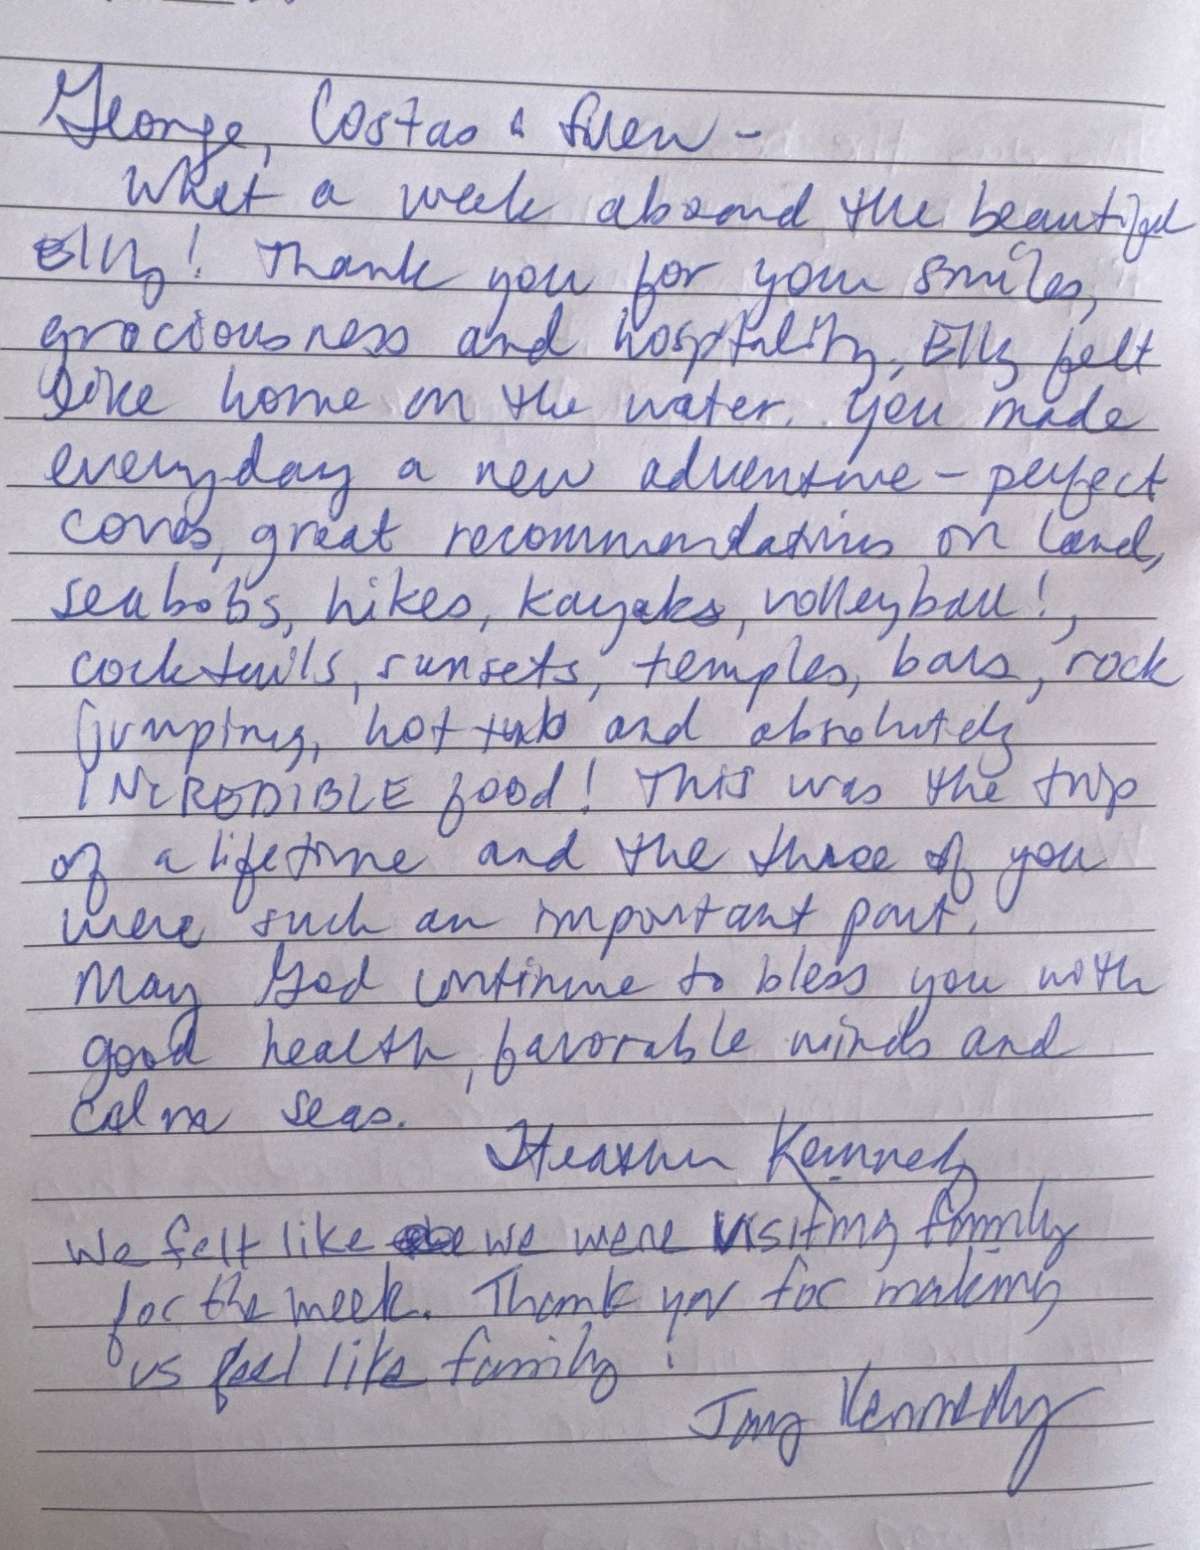 George, Costas &
What a week aboard the beautiful
Elly! Thank you for your smiles,
graciousness and hospitality, Elly felt
like home on the water. You made
everyday a new adventure - perfect
coves, great recommendations on land,
seabobs, hikes, kayaks, volleyball!,
cocktails, sunsets, temples, bars, rock
jumping, hot tub and absolutely
INCREDIBLE food! This was the trip
of a lifetime and the three of you
were such an important part.
May God continue to bless you with
good health, favorable winds and
calm seas.
Heather Kennedy
We felt like we were visiting family
for the week. Thank you for making
us feel like family!
Kennedy